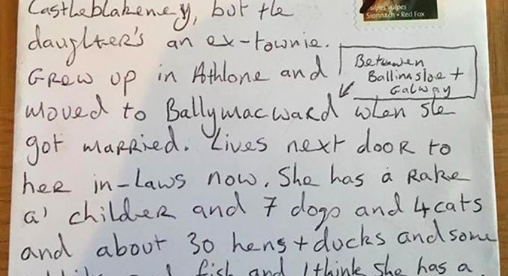 Castleblakeney, but the
vulpes vulpes
Sionnach • Red Fox
daughter's an ex-townie.
Grew up in Athlone and
Between
Ballinsloe +
Galway
moved to Ballymacward when she
got married. Lives next door to
her in-laws now. She has a rake
a' childer and 7 dogs and 4 cats
and about 30 hens + ducks and some
fish and I think she has a